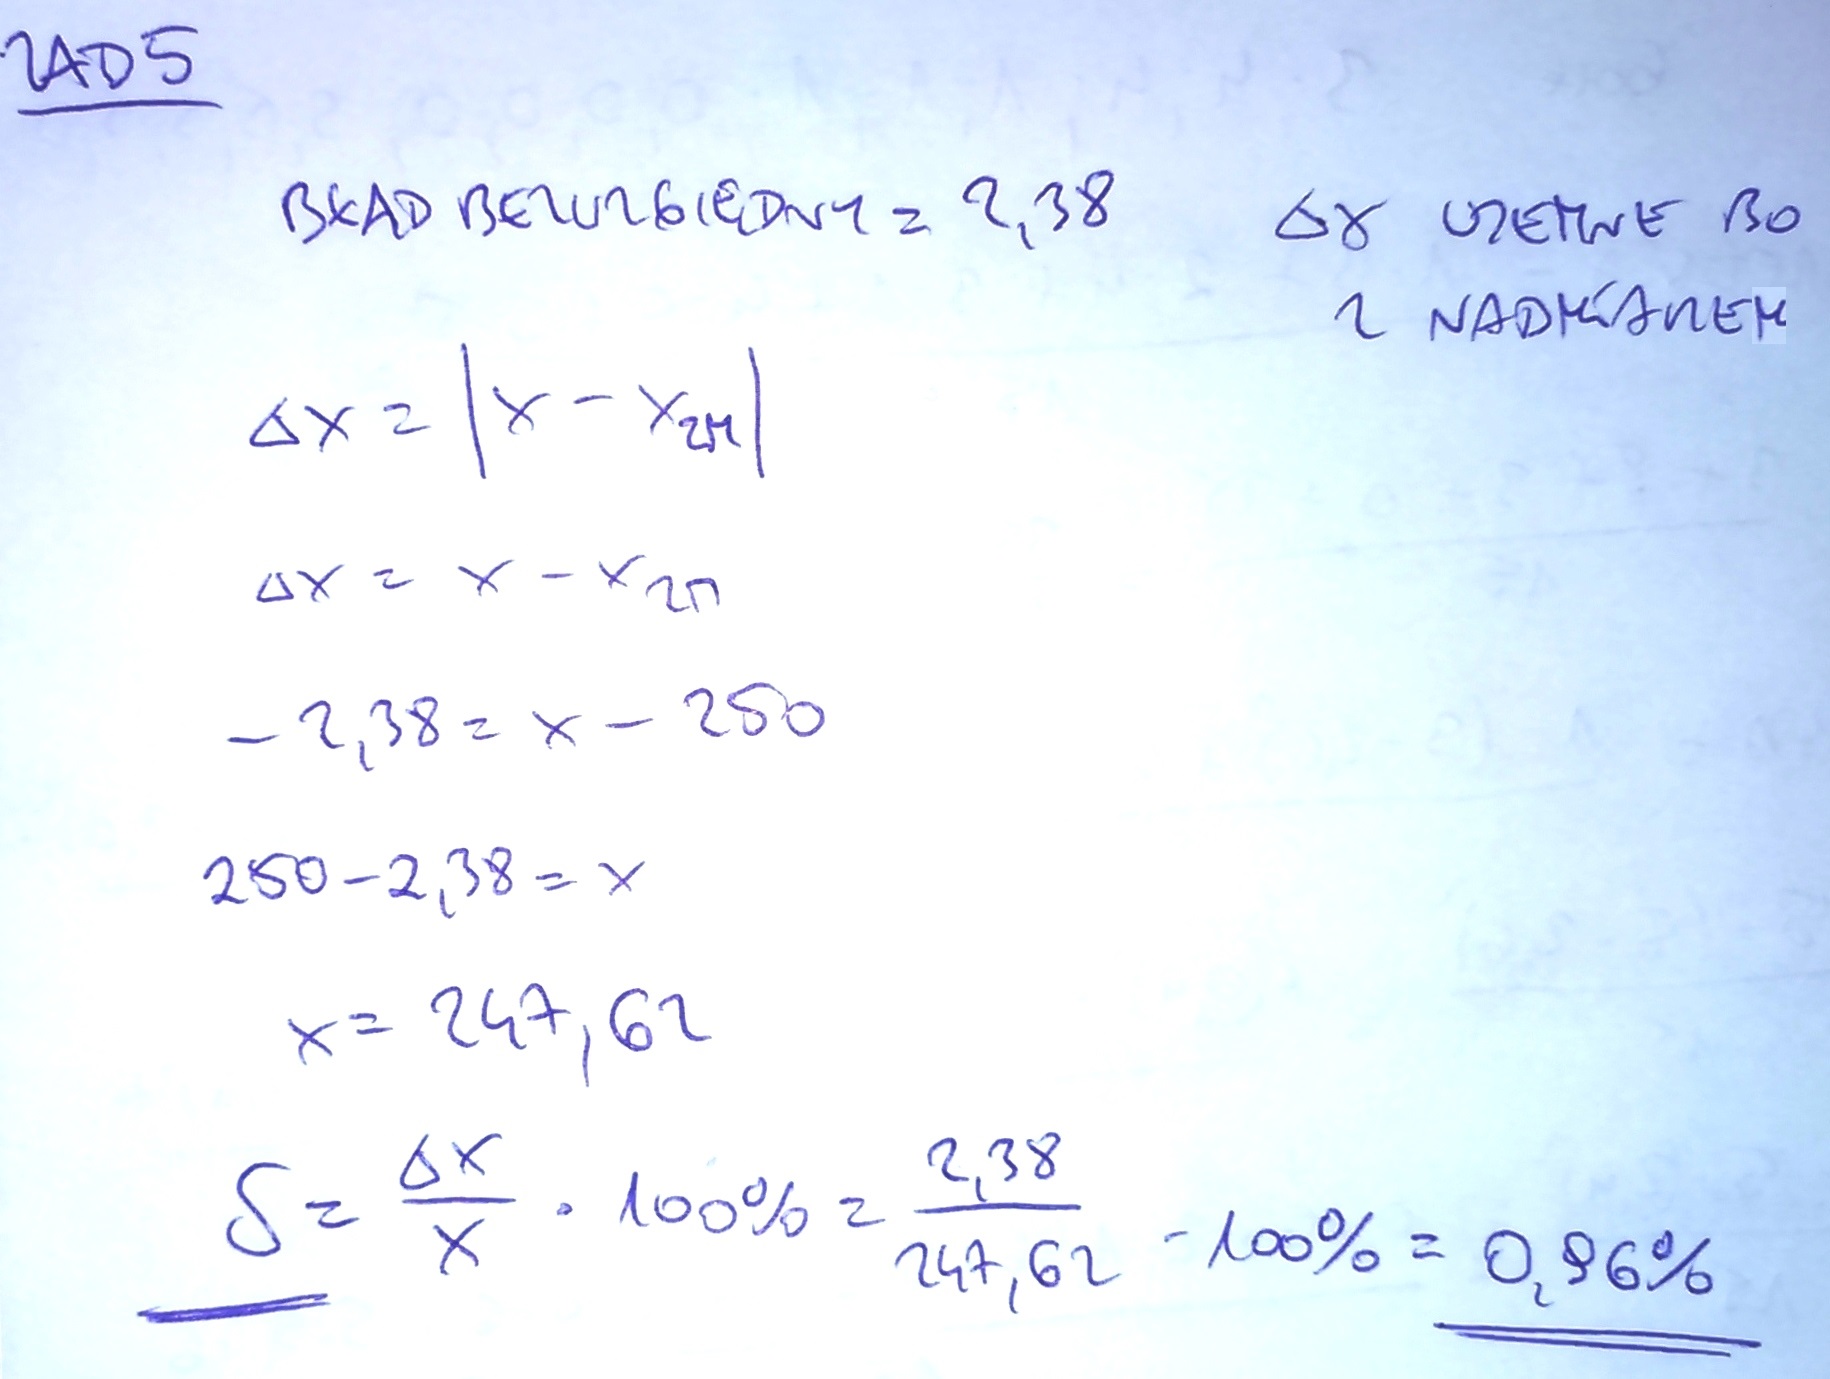 ZAD 5
BŁĄD BEZWZGLĘDNY = 2,38
Δx UJEMNE BO
Z NADMIAREM
Δx = |x - xzm|
Δx = x - xzm
- 2,38 = x - 250
250 - 2,38 = x
x = 247,62
δ = Δx/x · 100% = 2,38/247,62 · 100% = 0,96%